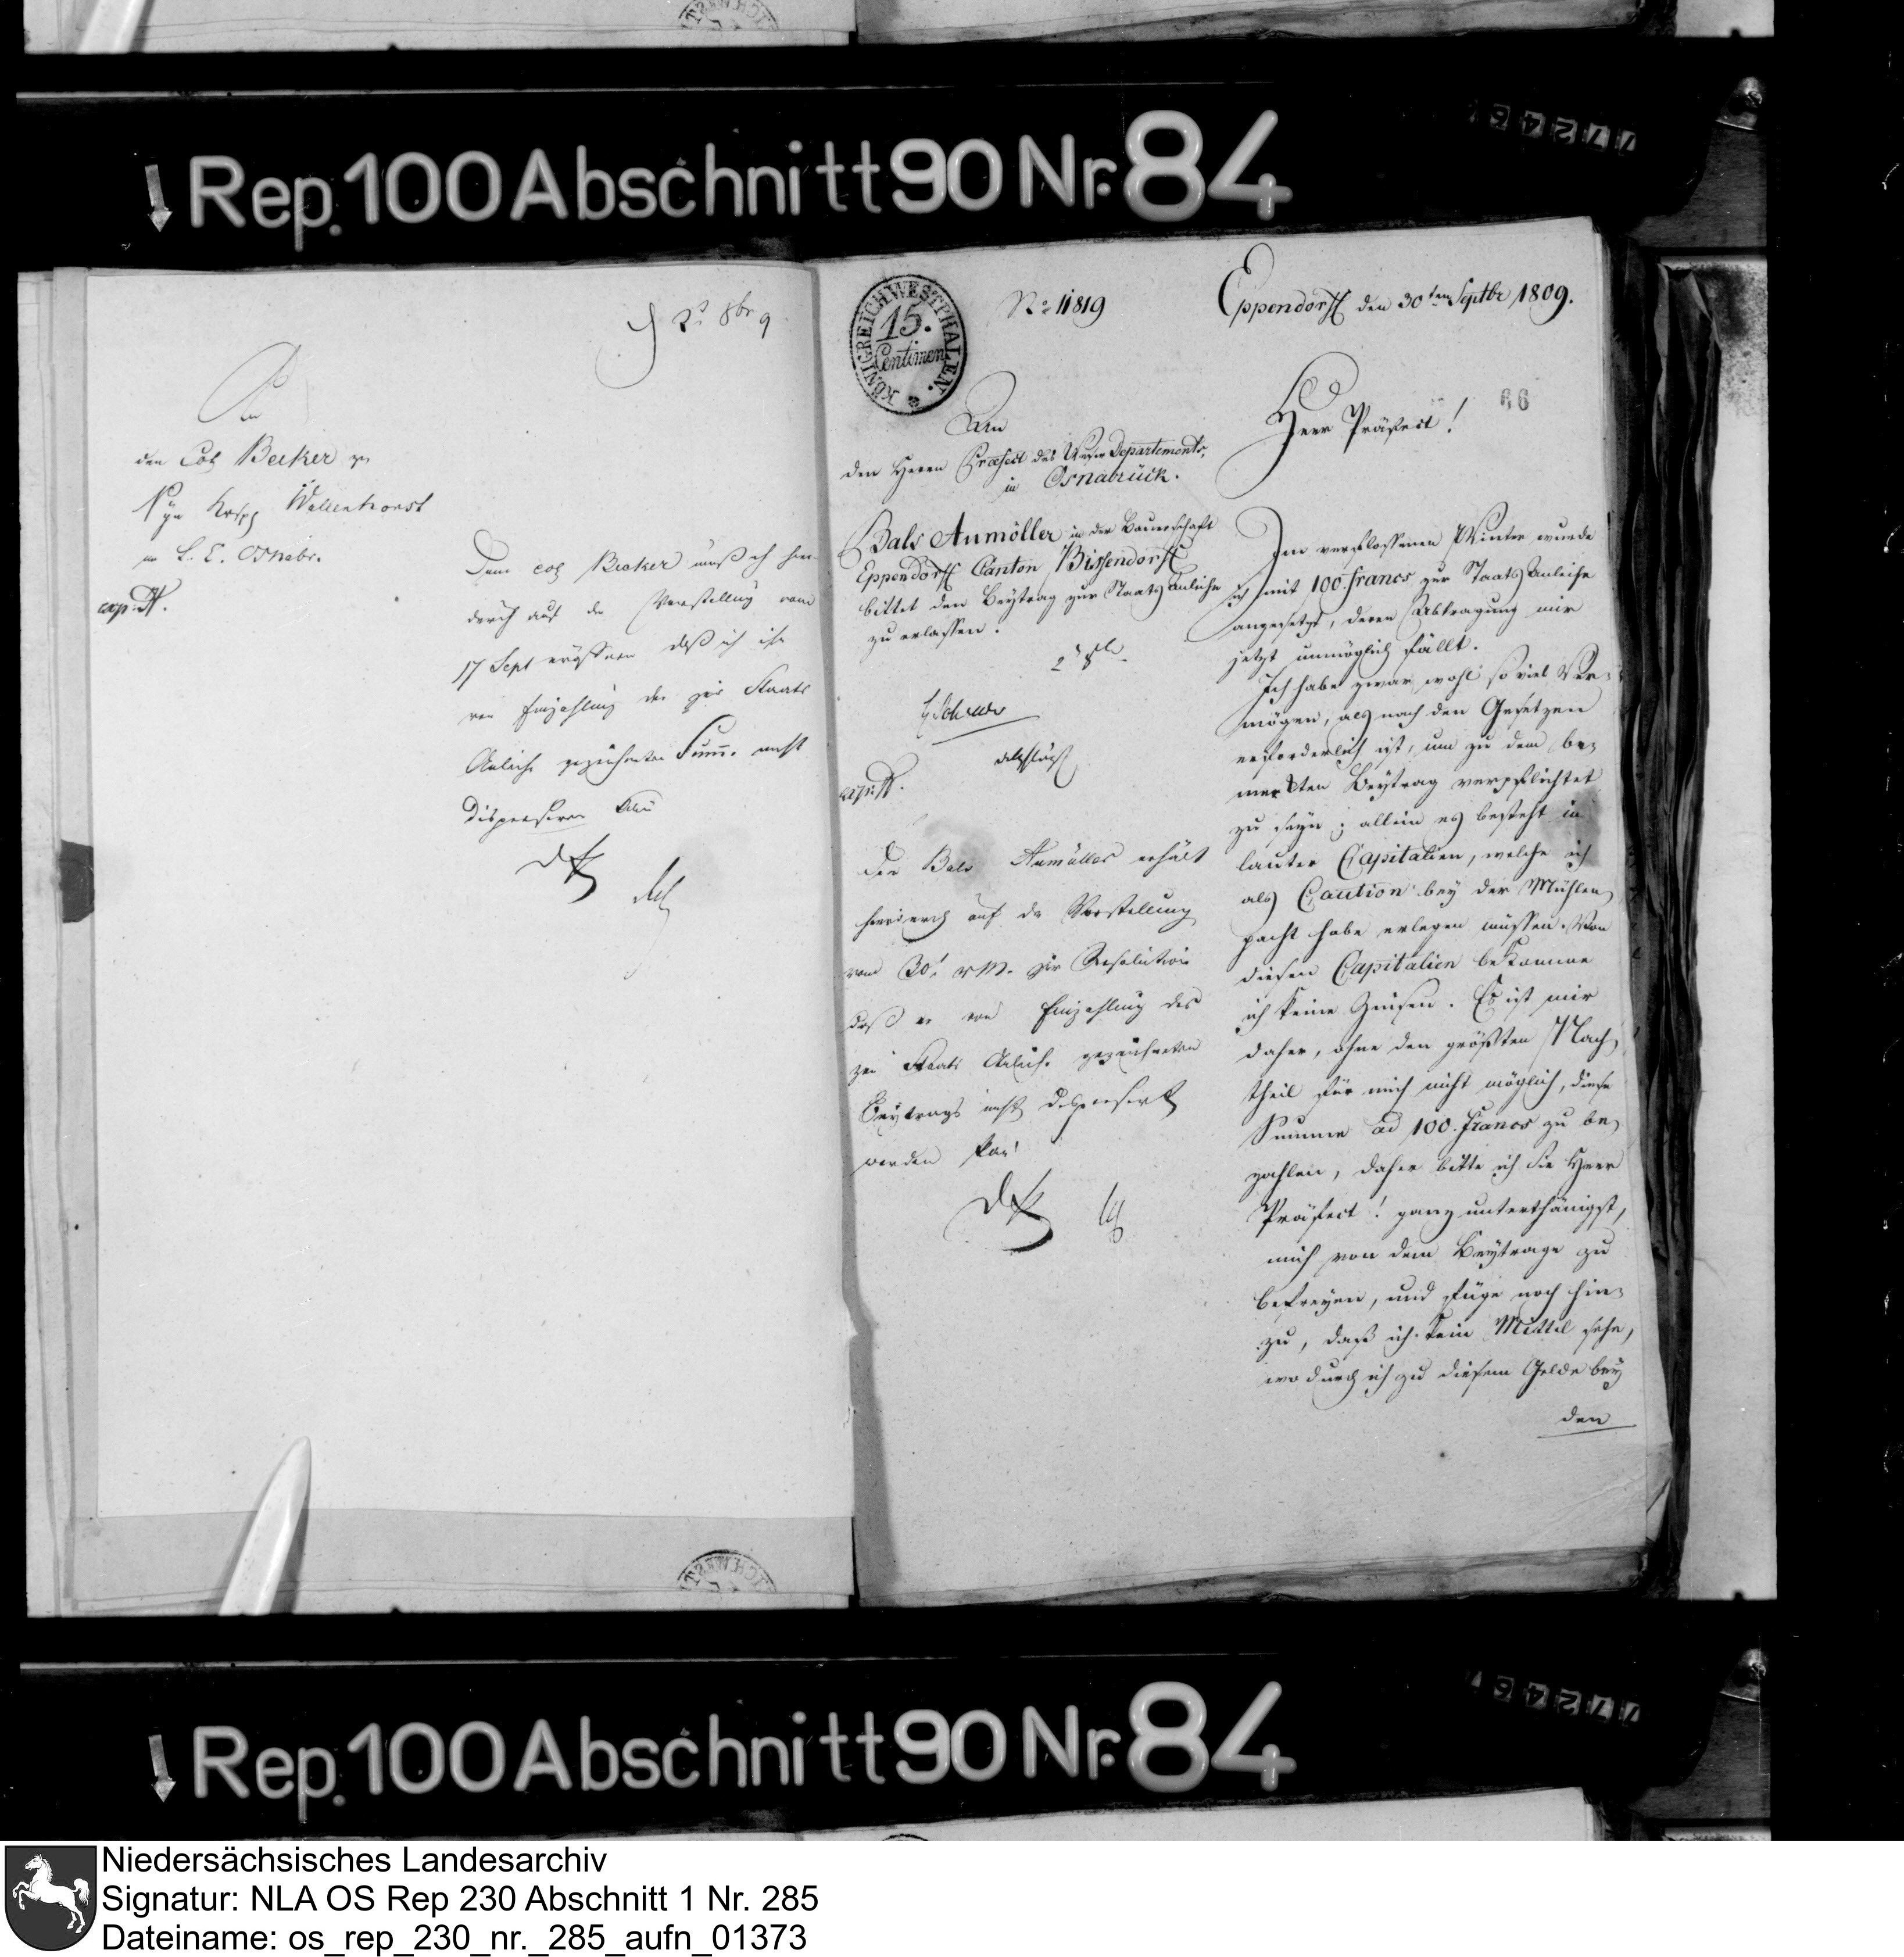 Rep. 100 Abschnitt 90 Nr. 84
2t 8br 9
An
den Col Becker zu
Krspl Wallenhorst
Osnabr.
exp.
Dem Col Becker muß ich hier-
durch auf die Vorstellung vom
17 Sept eröffnen daß ich ihn
von Einzahlung der zur Staats
Anleihe gezeichneten Summe nicht
dispensiren kan
KÖNIGREICH WESTPHALEN.
15.
Centimen
No 11819
Eppendorff den 30ten Septbr 1809.
66
An
den Herrn Præfect des Weser Departements,
in Osnabrück.
Bals Aumöller in der Bauerschaft
Eppendorff Canton Bissendorff
bittet den Beytrag zur Staats Anleihe
zu erlassen.
exp.
Der Bals Aumöller erhält
hierdurch auf die Vorstellung
vom 30t v M. zur Resolution
daß er von Einzahlung des
zur Staats Anleihe gezeichneten
Beytrags nicht dispensirt
werden kan
Herr Präfect!
Im verflossenen Winter wurde
ich mit 100 francs zur Staats Anleihe
angesetzt, deren Abtragung mir
jetzt unmöglich fällt.
Ich habe zwar wohl so viel Ver-
mögen, als nach den Gesetzen
erforderlich ist, um zu dem be-
merkten Beytrag verpflichtet
zu seyn; allein es besteht in
lauter Capitalien, welche ich
als Caution bey der Mühlen
pacht habe erlegen müssen. Von
diesen Capitalien bekomme
ich keine Zinsen. Es ist mir
daher, ohne den größten Nach-
theil für mich nicht möglich, diese
Summe ad 100. francs zu be-
zahlen, daher bitte ich Sie Herr
Präfect! ganz unterthänigst,
mich von dem Beytrage zu
befreyen, und füge noch hin-
zu, daß ich kein Mittel sehe,
wodurch ich zu diesem Gelde bey
den
Rep. 100 Abschnitt 90 Nr. 84
Niedersächsisches Landesarchiv
Signatur: NLA OS Rep 230 Abschnitt 1 Nr. 285
Dateiname: os_rep_230_nr._285_aufn_01373